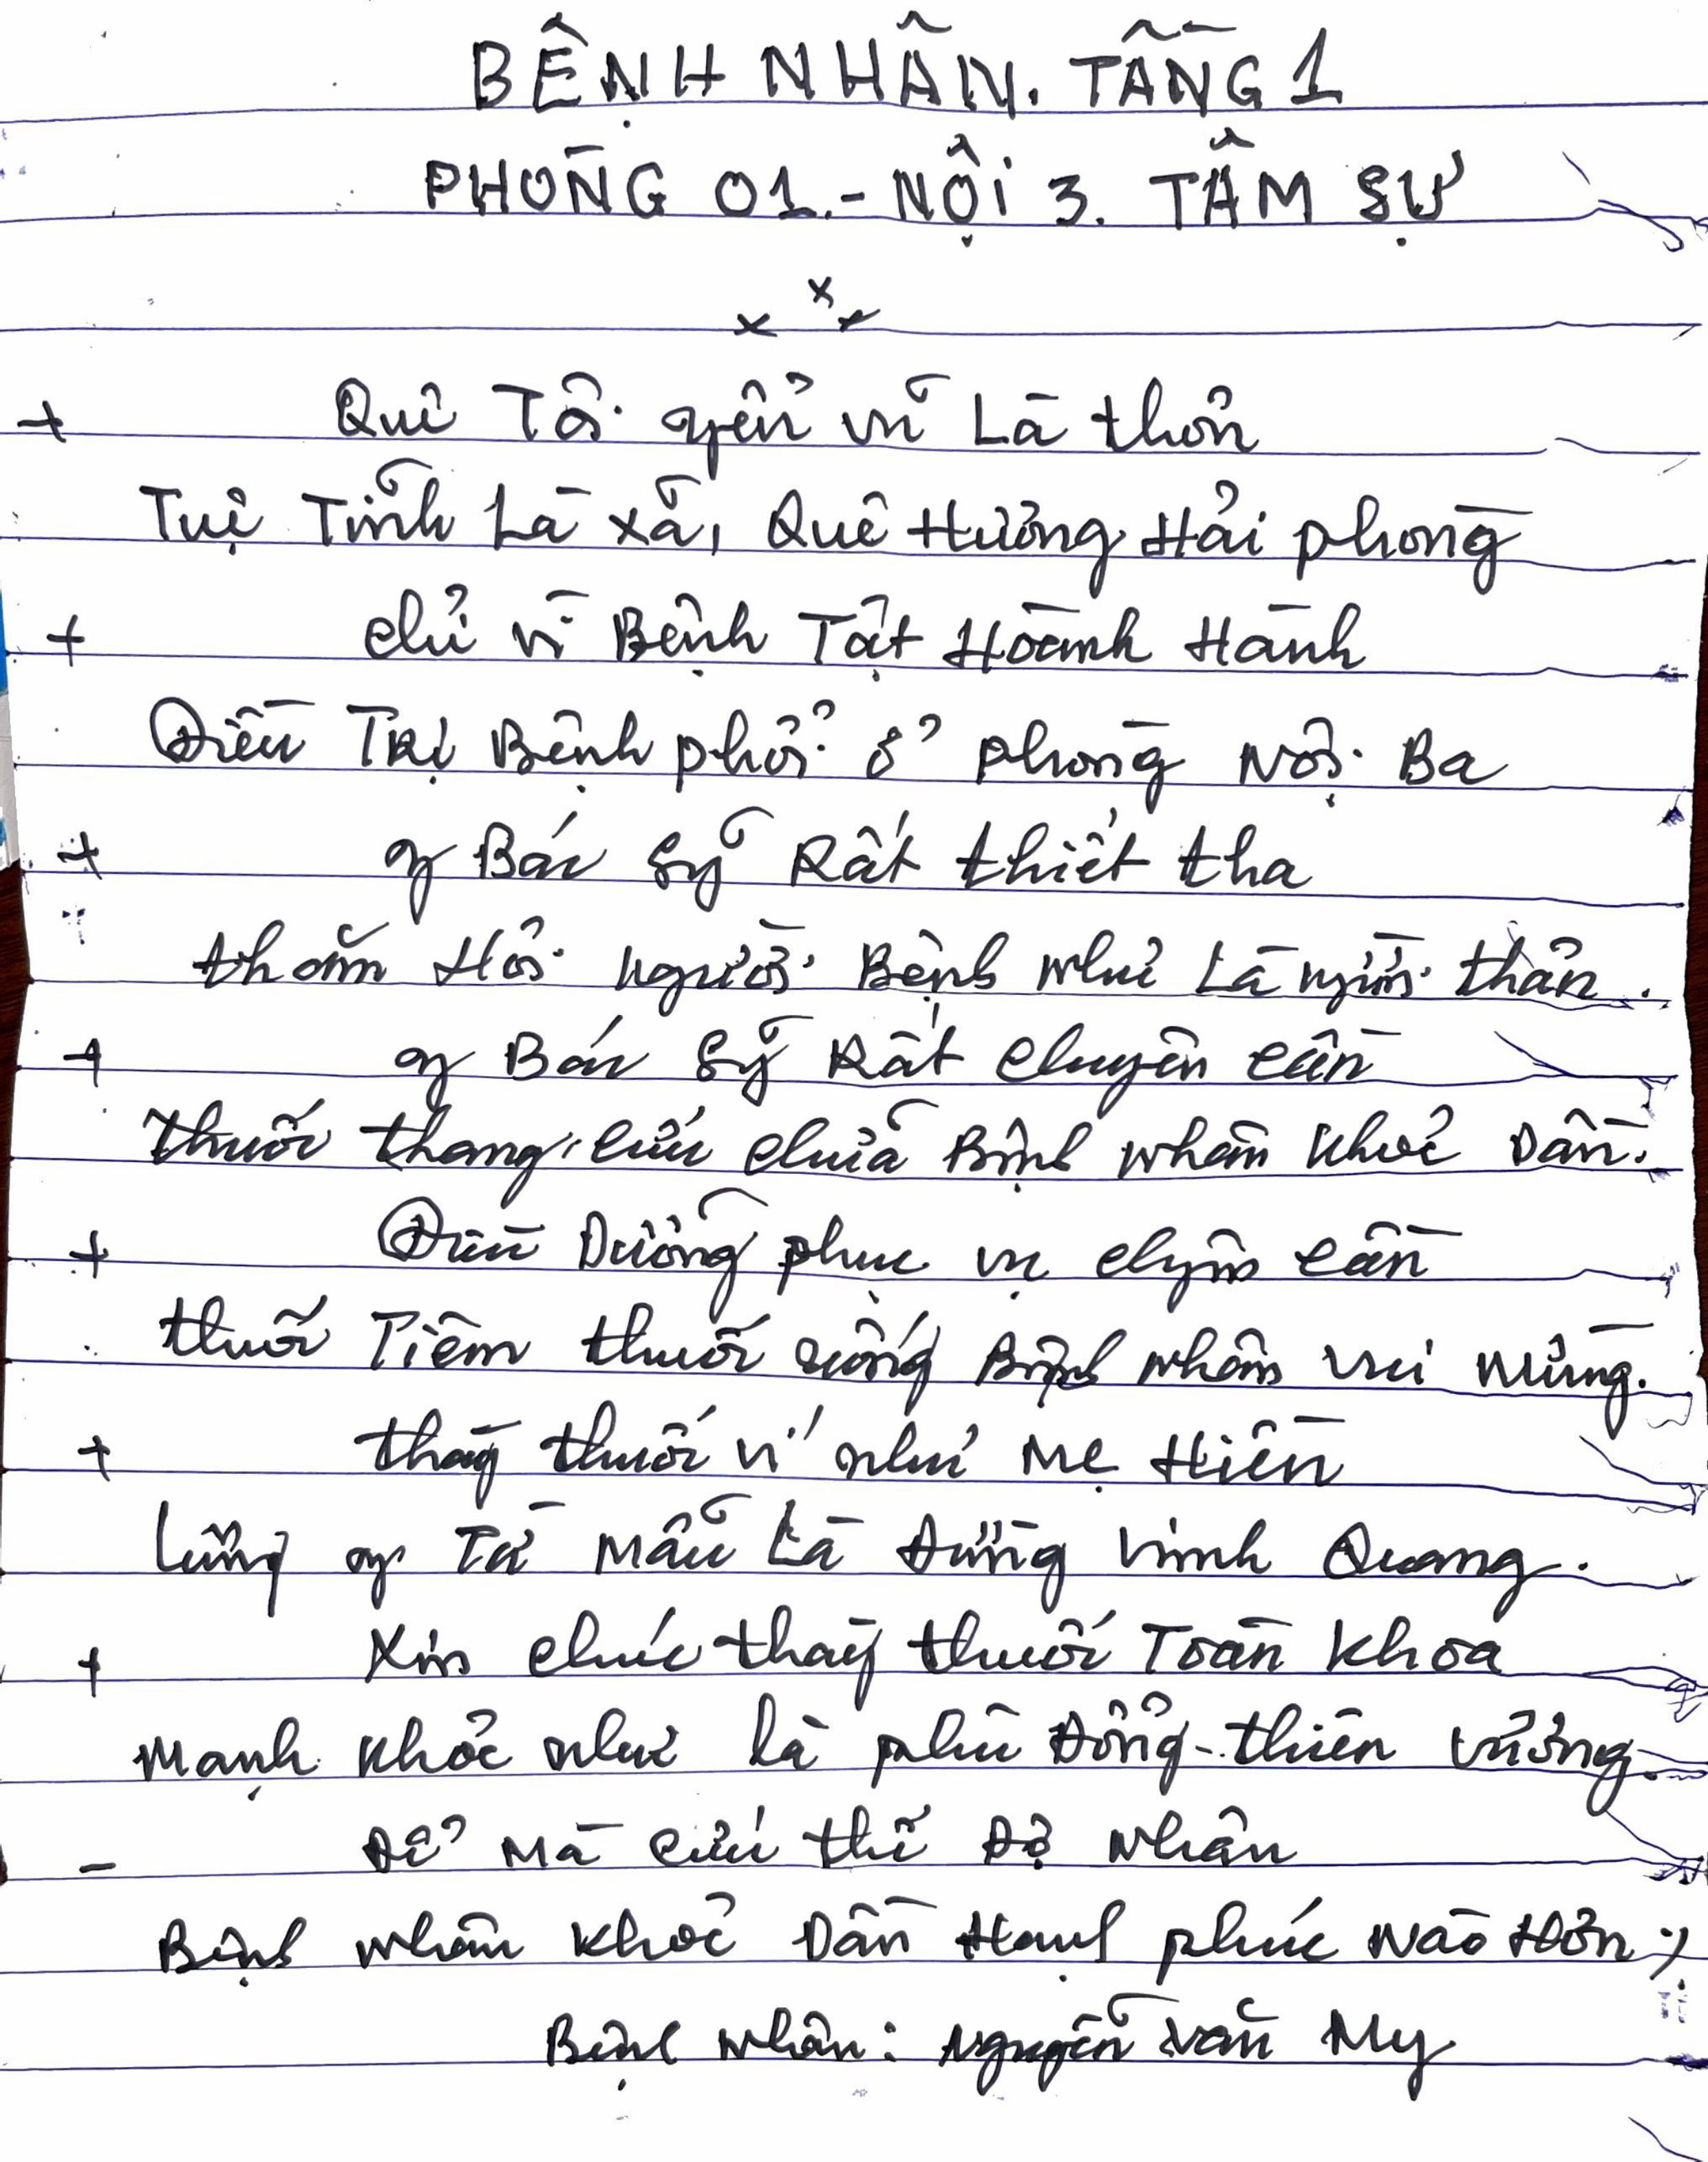 BỆNH NHÂN. TẦNG 1
PHÒNG 01.- NỘI 3. TÂM SỰ
x x x
+ Quê Tôi yên vũ Là thôn
Tuệ Tĩnh Là xã, Quê Hương Hải phòng
+ chỉ vì Bệnh Tật Hoành Hành
Điều Trị Bệnh phổi ở phòng Nội Ba
+ y Bác sỹ Rất thiết tha
thăm Hỏi người Bệnh như Là người thân.
+ y Bác sỹ Rất chuyên cần
thuốc thang, cứu chữa Bệnh nhân khoẻ Dần.
+ Điều Dưỡng phục vụ chuyên cần
thuốc Tiêm thuốc uống Bệnh nhân vui mừng.
+ thầy thuốc ví như Mẹ Hiền
Lương y Từ Mẫu Là Đường Vinh Quang.
+ Xin chúc thầy thuốc Toàn khoa
Mạnh khoẻ như là phù Đổng-thiên vương.
- Để Mà cứu thế Độ Nhân
Bệnh nhân khoẻ Dần Hạnh phúc Nào Hơn ./.
Bệnh Nhân: Nguyễn Văn My